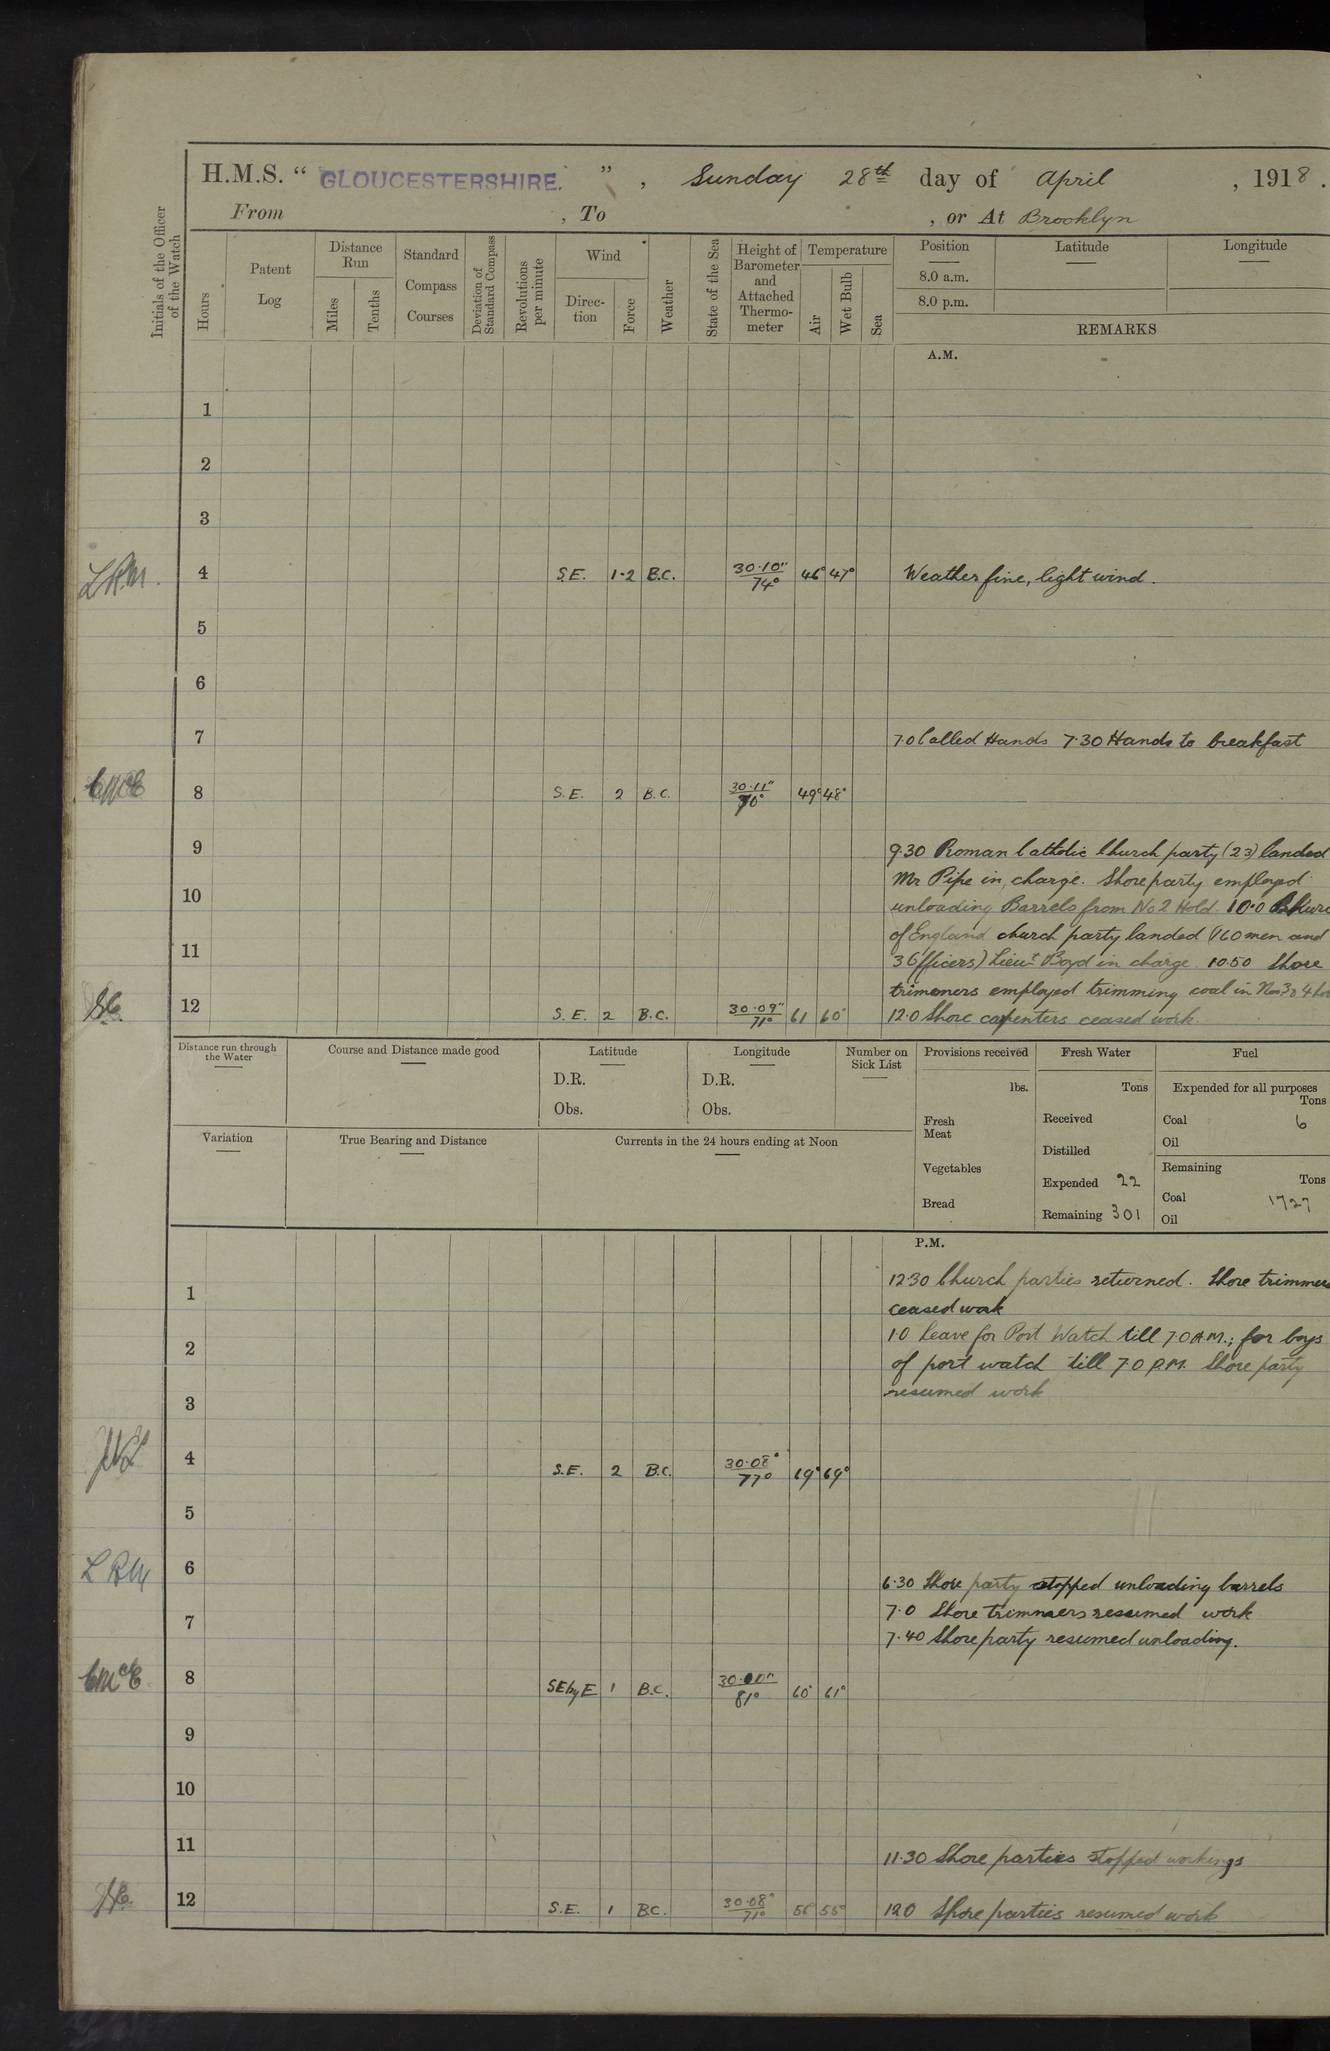 H.M.S. "GLOUCESTERSHIRE.", Sunday 28th day of April, 1918.
From , To , or At Brooklyn
Initials of the Officer of the Watch
Hours
Patent Log
Distance Run
Miles
Tenths
Standard Compass Courses
Deviation of Standard Compass
Revolutions per minute
Wind
Direc-tion
Force
Weather
State of the Sea
Height of Barometer and Attached Thermo-meter
Temperature
Air
Wet Bulb
Sea
Position Latitude Longitude
8.0 a.m.
8.0 p.m.
REMARKS
A.M.
1
2
3
4 S.E. 1-2 B.C. 30.10" 74° 46° 47° Weather fine, light wind.
5
6
7 7.0 Called Hands 7.30 Hands to breakfast
8 S.E. 2 B.C. 30.11" 70° 49° 48°
9 9.30 Roman Catholic Church party (23) landed
Mr Pipe in charge. Shore party employed
10 unloading Barrels from No 2 Hold. 10.0
of England church party landed (160 men and
11 3 Officers) Lieut Boyd in charge 10.50 Shore
trimmers employed trimming coal in
12 S.E. 2 B.C. 30.09" 71° 61 60° 12.0 Shore carpenters ceased work.
Distance run through the Water
Course and Distance made good
Latitude
D.R.
Obs.
Longitude
D.R.
Obs.
Number on Sick List
Provisions received
lbs.
Fresh Meat
Vegetables
Bread
Fresh Water
Tons
Received
Distilled
Expended 22
Remaining 301
Fuel
Expended for all purposes
Tons
Coal 6
Oil
Remaining
Tons
Coal 1727
Oil
Variation
True Bearing and Distance
Currents in the 24 hours ending at Noon
P.M.
1 12.30 Church parties returned. Shore trimmers
ceased work
2 1.0 Leave for Port Watch till 7.0 A.M.; for boys
of port watch till 7.0 P.M. Shore party
3 resumed work
4 S.E. 2 B.C. 30.08" 77° 69° 69°
5
L R M 6 6.30 Shore party stopped unloading barrels
7 7.0 Shore trimmers resumed work
7.40 Shore party resumed unloading.
CMcE 8 SE by E 1 B.C. 81° 60° 61°
9
10
11 11.30 Shore parties stopped workings
12 S.E. 1 B.C. 30.08" 71° 55° 12.0 Shore parties resumed work